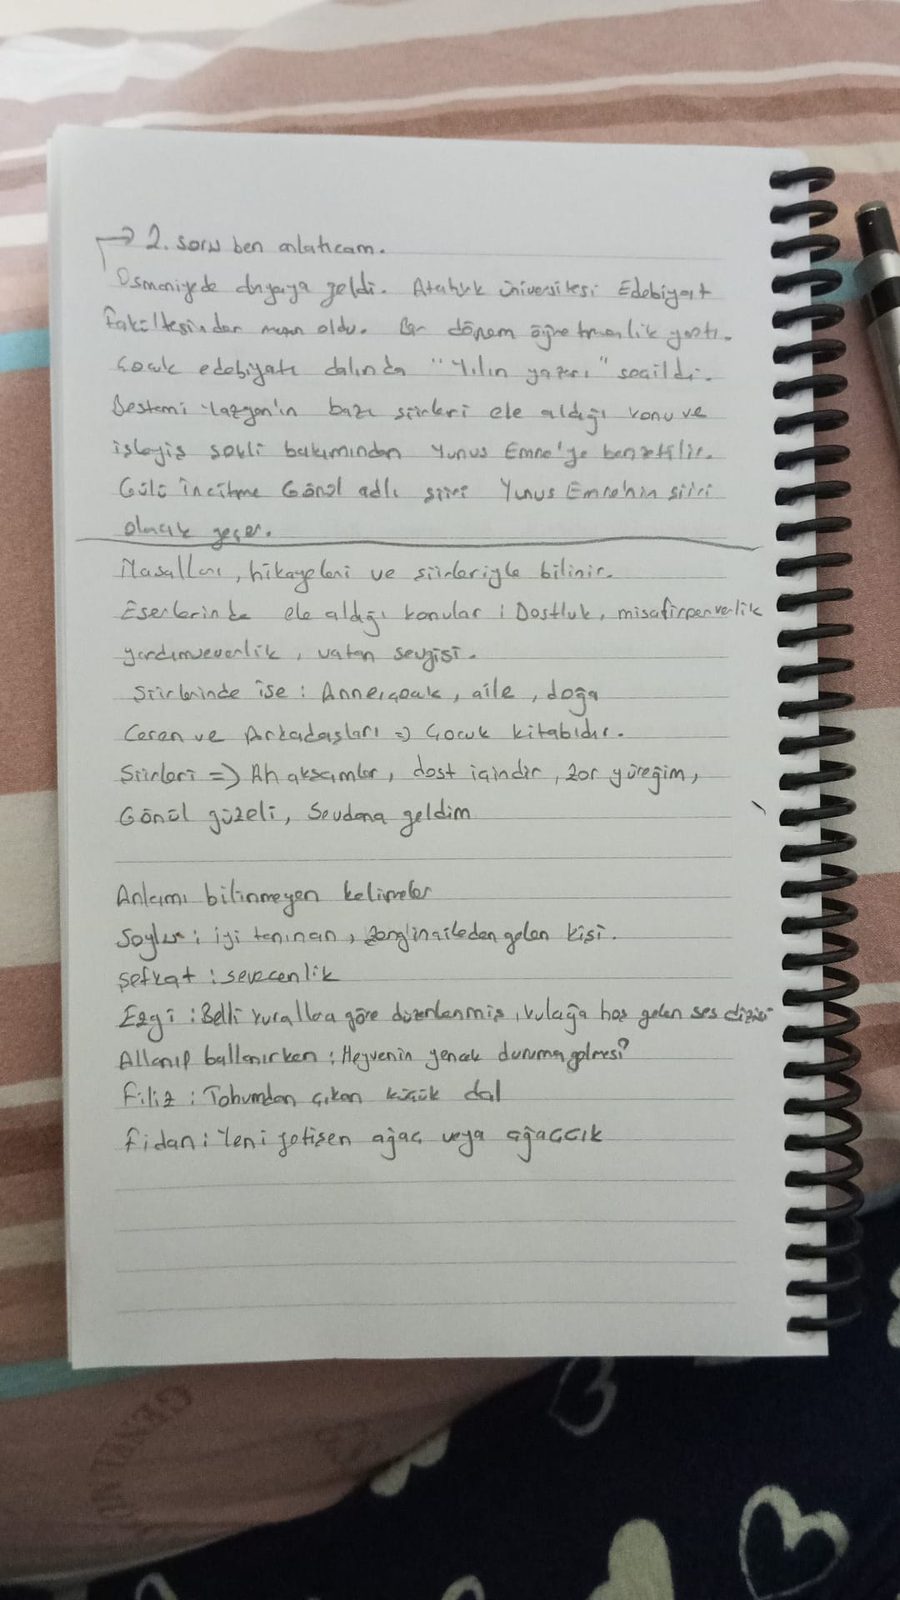 → 2. soru ben anlatıcam.
Osmaniyede dünyaya geldi. Atatürk üniversitesi Edebiyat
fakültesinden mezun oldu. Bir dönem öğretmenlik yaptı.
Çocuk edebiyatı dalında "Yılın yazarı" seçildi.
Bestami Yazgan'ın bazı şiirleri ele aldığı konu ve
işleyiş şekli bakımından Yunus Emre'ye benzetilir.
Gülü incitme Gönül adlı şiiri Yunus Emre'nin şiiri
olarak geçer.
Masalları, hikayeleri ve şiirleriyle bilinir.
Eserlerinde ele aldığı konular : Dostluk, misafirperverlik
yardımseverlik, vatan sevgisi.
Şiirlerinde ise : Anne, çocuk, aile, doğa
Ceren ve Arkadaşları => Çocuk kitabıdır.
Şiirleri => Ah akşamlar, dost içindir, zor yüreğim,
Gönül güzeli, Sevdana geldim
Anlamı bilinmeyen kelimeler
Soylu : iyi tanınan, zengin aileden gelen kişi.
Şefkat : sevecenlik
Ezgi : Belli kurallara göre düzenlenmiş, kulağa hoş gelen ses dizisi
Allanıp ballanırken : Meyvenin yenecek duruma gelmesi?
Filiz : Tohumdan çıkan küçük dal
Fidan : Yeni yetişen ağaç veya ağaççık
GENEL MÜ